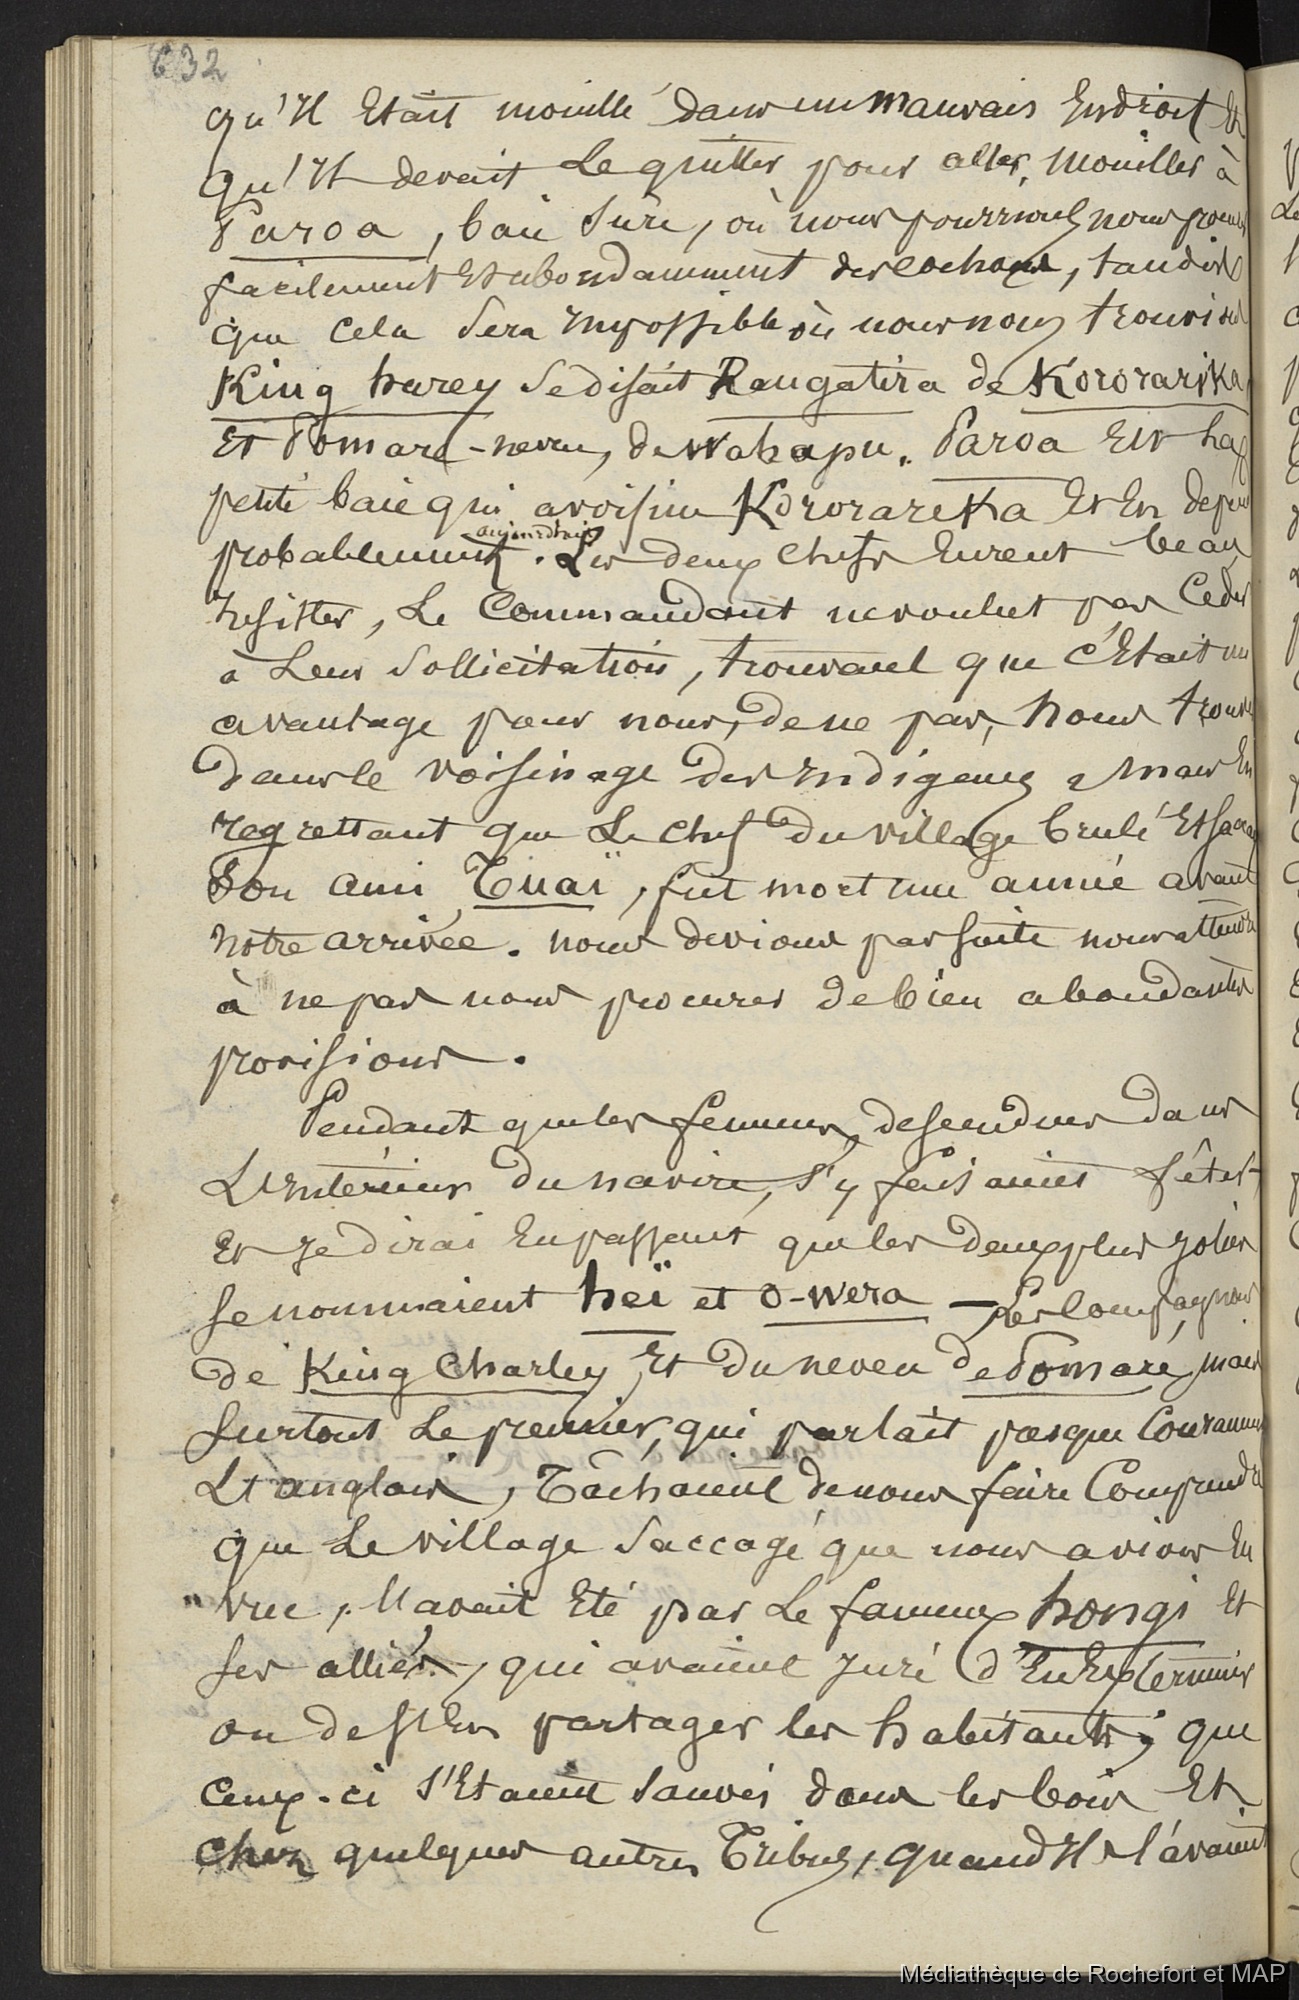 632
qu'Il Etait mouillé dans un mauvais Endroit Et
qu'Il devait Le quitter pour aller, Mouiller à
Paroa, baie sure, où nous pourrions nous procurer
facilement Et abondamment des cochons, tandis
que cela sera Impossible où nous nous trouvions
King harey se disait Rangatira de Kororarika,
Et Pomaré-neveu, de Wahapu. Paroa Est la
petite baie qui avoisine Kororarika Et En dépend
probablement aujourd'hui. Les deux Chefs Eurent beau
Insister, Le Commandant ne voulut pas Ceder
à Leur Sollicitation, trouvant que c'Etait un
avantage pour nous, de ne pas, nous trouver
dans le voisinage des Indigenes, Mais En
regrettant que Le Chef du village brulé Et saccagé
Son ami Tuaï, fut mort une année avant
notre arrivée. nous devions par suite nous attendre
à ne pas nous procurer de bien abondantes
provisions.
Pendant que les femmes, descendues dans
L'Intérieur du navire, s'y faisaient fêter
Et Je dirai En passant que les deux plus Jolies
se nommaient heï et O-Wera — Les Compagnons
de King Charley Et du neveu de Pomaré, mais
surtout Le premier, qui parlait presque Couramment
L'anglais, Tâchaient de nous faire Comprendre
que Le village Saccagé que nous avions En
vue, l'avait Eté par Le fameux hongi Et
ses alliés, qui avaient Juré d'En Exterminer
ou de s'En partager les habitants; que
ceux-ci s'Etaient sauvés dans les bois Et
chez quelques autres Tribus, quand Ils l'avaient
Médiathèque de Rochefort et MAP